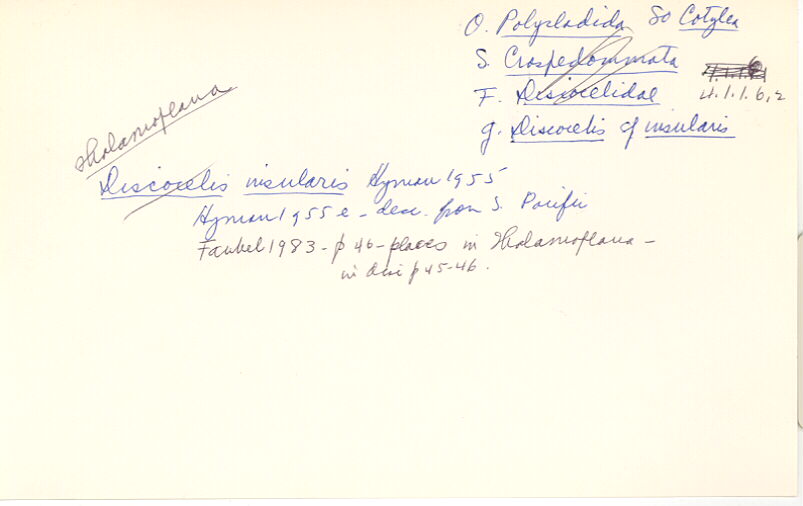 O. Polycladida SO Cotylea
S. Craspedommata
4.1.1.6.2
F. Discocelidae
g. Discocelis cf insularis
Thalamoplana
Discocelis insularis Hyman 1955
Hyman 1955e - desc. from S. Pacific
Faubel 1983 - p 46 - places in Thalamoplana -
in disc p 45-46.